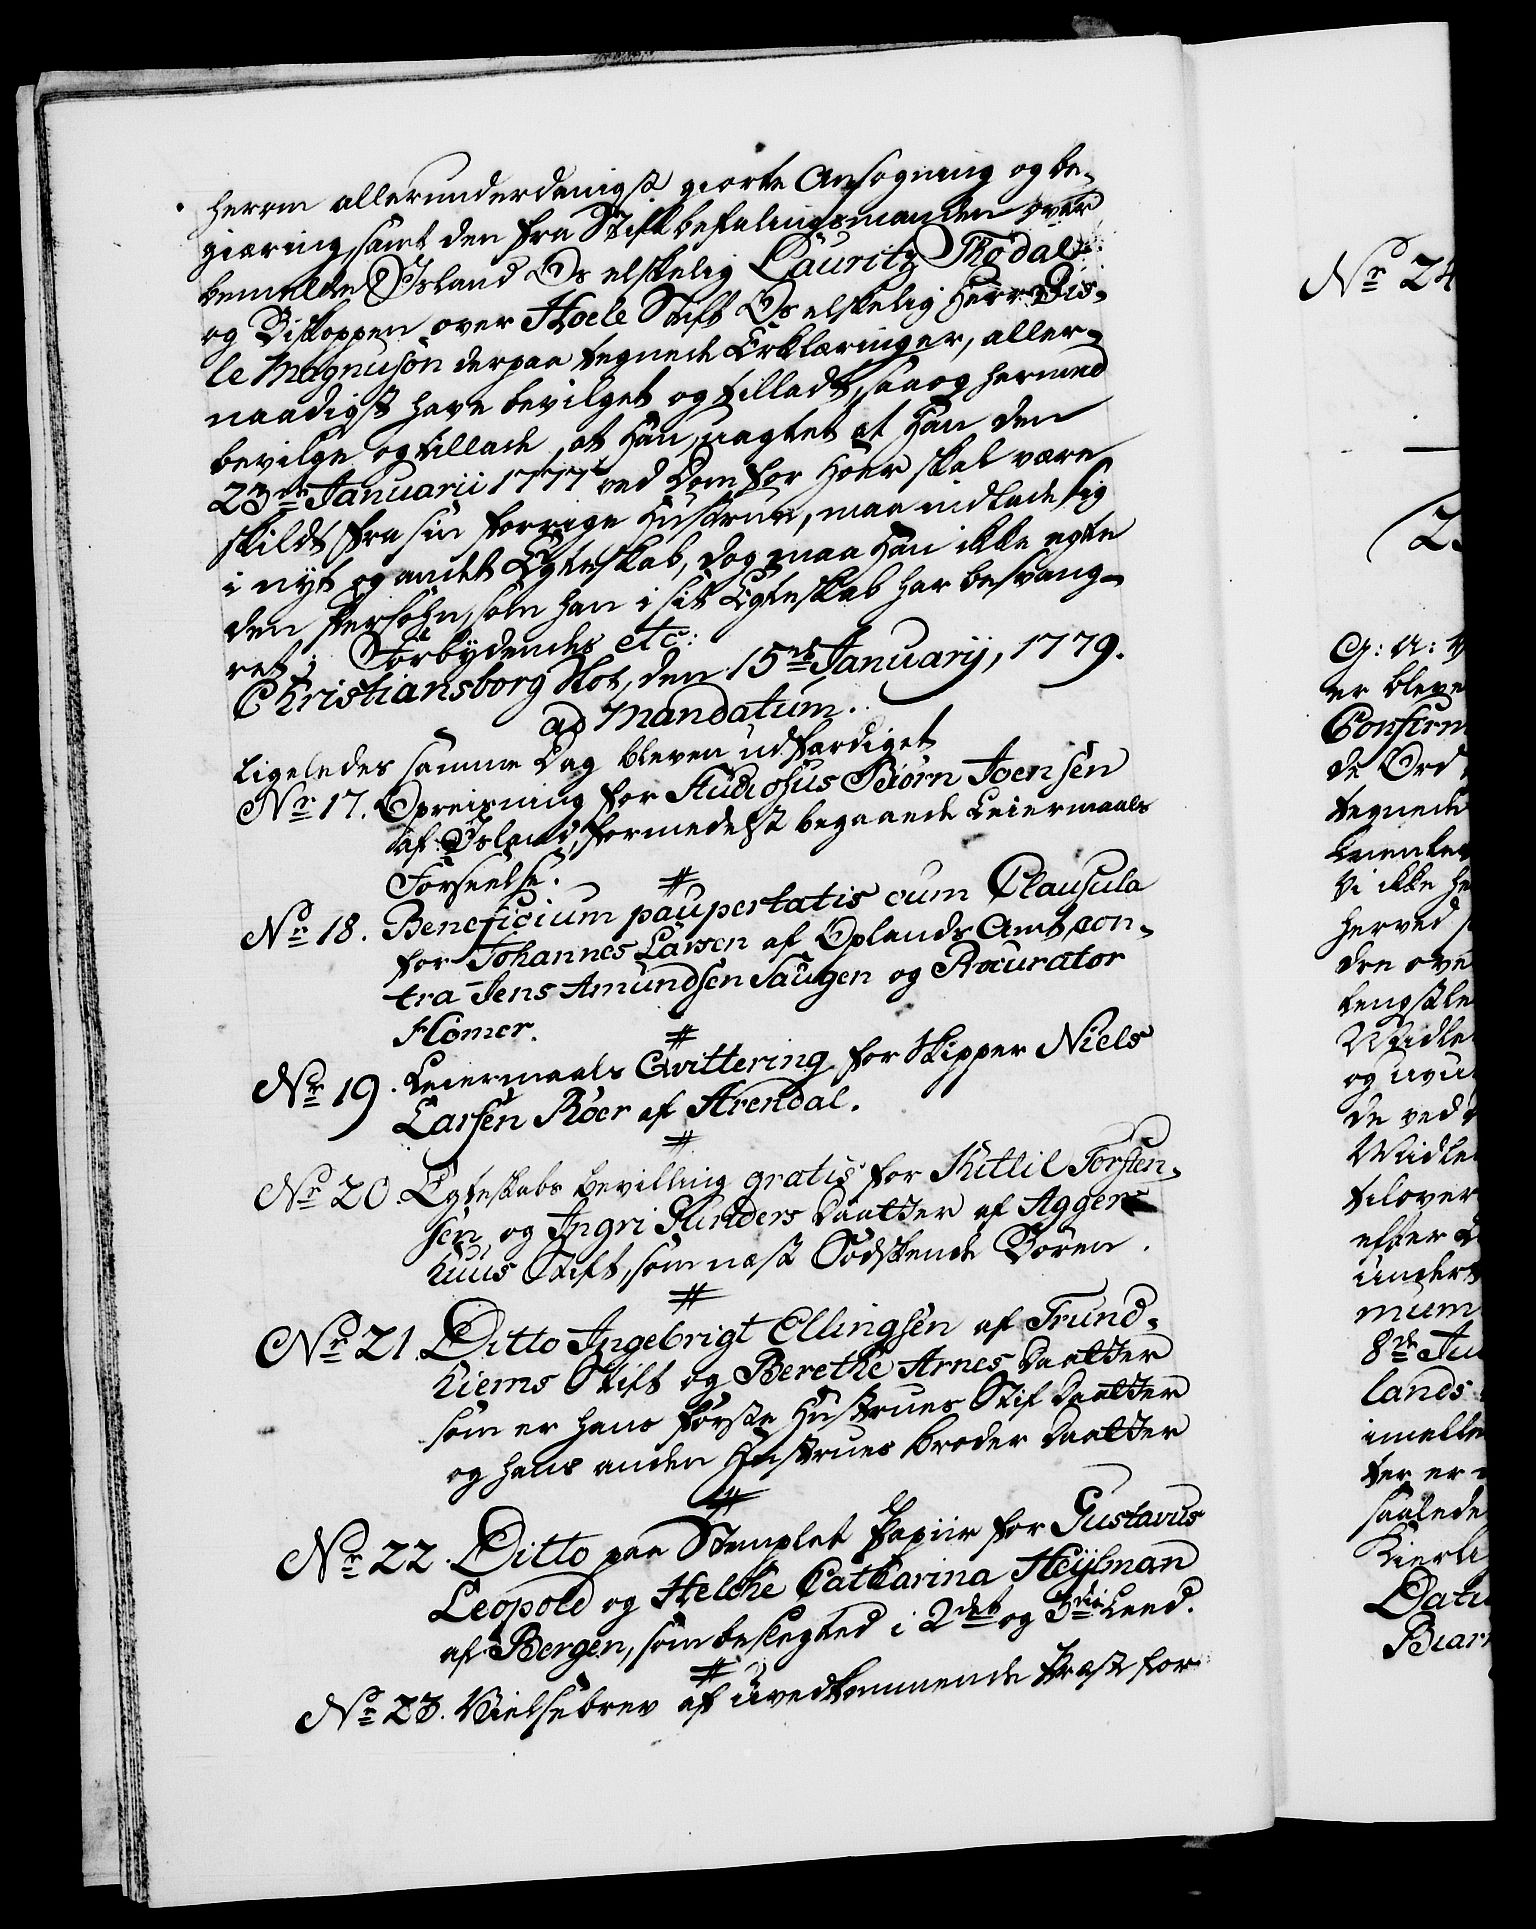 herom allerunderdanigst giorte Ansøgning og be-
giæring, samt den fra Stiftbefalingsmanden over
bemelte Island Os elskelig Lauritz Thodal
og Biskoppen over Hoele Stift Os elskelig Herr Gis-
le Magnusøn derpaa tegnede Erklæringer, aller-
naadigst have bevilget og tilladt, saa og hermed
bevilge og tillade, at Han, uagtet at Han den
23de Januarii 1777 ved Dom for Hoer skal være
skildt fra sin forrige Hustrue, maa indlade sig
i nyt og andet Egteskab, dog maa Han ikke egte
den Persohn, som han i sit Egteskab har besvang-
ret; Forbydendes etc:
Christiansborg Slot, den 15de Januarij, 1779.
ad Mandatum.
Ligeledes samme Dag bleven udfærdiget
No 17. Opreisning for Studiosus Biørn Joensen
af Island, formedelst begaaede Leiermaals
Forseelse.
#
No 18. Beneficium paupertatis cum Clausula
for Johannes Larsen af Oplands Amt con-
tra Jens Amundsen Saugen og Procurator
Homer.
#
No 19. Leiermaals Qvittering for Skipper Niels
Larsen Röer af Arendal.
#
No 20 Egteskabs bevilling gratis for Kittil Torsten-
sen og Ingri Gunders Daatter af Agger-
huus Stift, som næst Södskende Börn.
#
No 21. Ditto Ingebrigt Ellingsen af Trund-
hiems Stift og Berethe Arnes Daatter
som er hans første Hustrues Stif Daatter
og hans anden Hustrues broder Daatter
#
No 22. Ditto paa Stemplet Papiir for Gustavus
Leopold og Helche Catharina Heijlman
af Bergen, som beslegted i 2det og 3die Leed.
#
No 23. Vielsebrev af uvedkommende Præst for
No 24
G: A: V
er bleve
Confirm
de Ord
tegnede
Vi ikke he
herved
den ove
lengst
og
de ved
tilover
efter
under
mum
8de Ju
lands
imelle
ter er
saalede
Datu